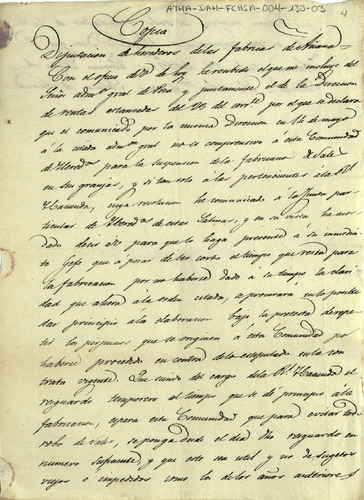 ATHA-DAH-FCHSA-004-130-03
4
Copia
Diputacion de herederos de las fabricas de Añana
Con el oficio de V. de hoy he recibido el que me incluye del
Señor admor gral de Rioja y juntamente el de la Direccion
de rentas estancadas del 23 del corrte por el que se declara
que el comunicado por la misma Direccion en 14 de mayo
á la citada admon gral no es comprensivo á esta Comunidad
de Hereds para la suspension de la fabricacion de Sal
en sus granjas, y si tan solo á las pertenecientes á la Rl
Hacienda, cuya resolucion he comunicado á la Junta par
ticular de Hereds de estas Salinas, y en su vista ha acor
dado decir á V. para que lo haga presente á su inmedia
to Gefe que á pesar de ser corto el tiempo que resta para
la fabricacion por no haberse dado á su tiempo la clari
dad que ahora á la orden citada, se procurará en lo posible
dar principio á la elaboracion bajo la protesta de repe
tir los perjuicios que se originen á esta Comunidad por
haberse procedido en contra de lo estipulado en la con
trata vigente. Que siendo del cargo de la Rl Hacienda el
resguardo temporero al tiempo que se dé principio á la
fabricacion, espera esta Comunidad que para evitar todo
robo de sal, se ponga desde el dia dho resguardo en
numero suficiente, y que este sea util y no de sugetos
viejos o impedidos como los de los años anteriores y